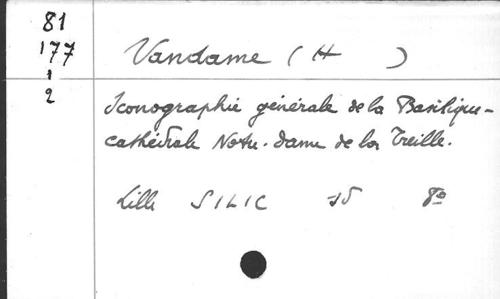 81
177
1
2
Vandame ( H )
Iconographie générale de la Basilique-
cathédrale Notre-Dame de la Treille.
Lille SILIC 8°